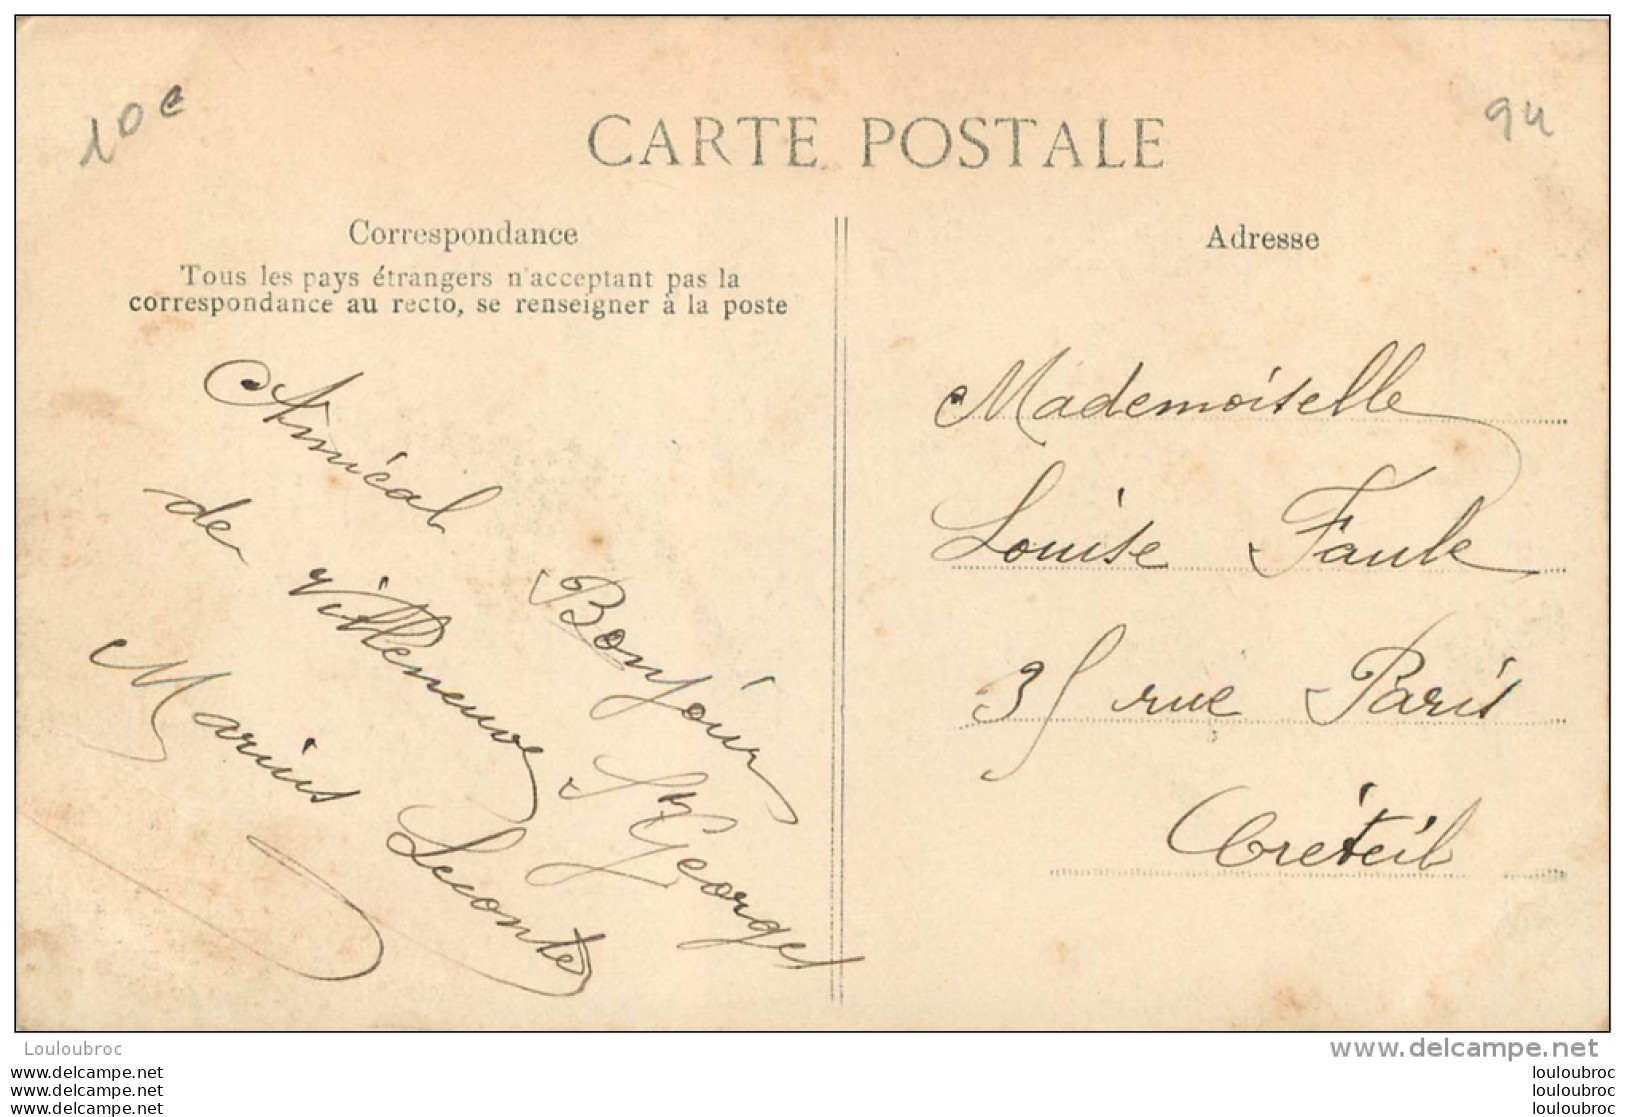 10e
94
CARTE POSTALE
Correspondance
Tous les pays étrangers n'acceptant pas la
correspondance au recto, se renseigner à la poste
Amical Bonjour
de Villeneuve St Georges
Marius Leconte
Adresse
Mademoiselle
Louise Faule
35 rue Paris
Créteil
Louloubroc
www.delcampe.net
louloubroc
louloubroc
louloubroc
louloubroc
louloubroc
louloubroc